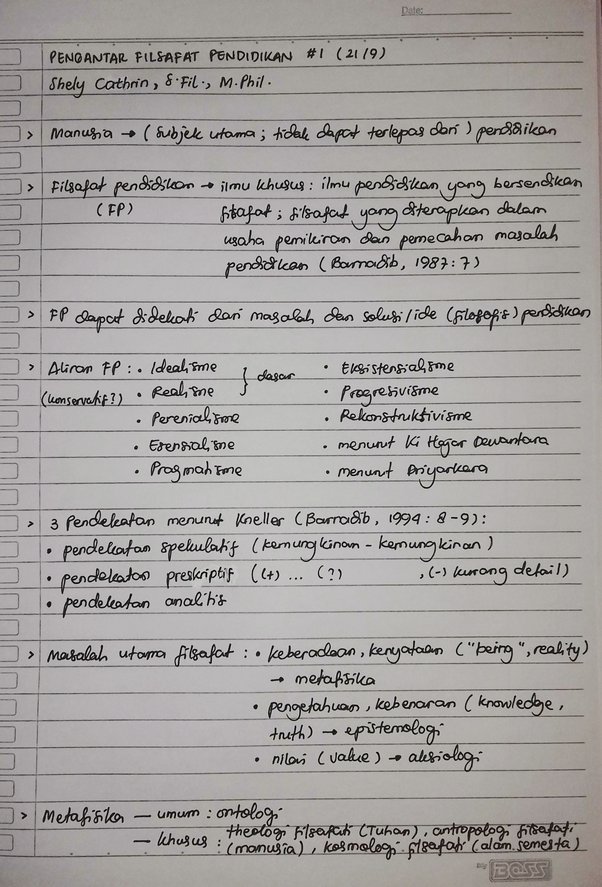 Date:
PENGANTAR FILSAFAT PENDIDIKAN #1 (21/9)
Shely Cathrin, S.Fil., M.Phil.
> Manusia → (subjek utama; tidak dapat terlepas dari) pendidikan
> Filsafat pendidikan → ilmu khusus: ilmu pendidikan yang bersendikan
(FP) filsafat; filsafat yang diterapkan dalam
usaha pemikiran dan pemecahan masalah
pendidikan (Barnadib, 1987: 7)
> FP dapat didekati dari masalah dan solusi/ide (filosofis) pendidikan
> Aliran FP: • Idealisme } dasar • Eksistensialisme
(konservatif?) • Realisme • Progresivisme
• Perenialisme • Rekonstruktivisme
• Esensialisme • menurut Ki Hajar Dewantara
• Pragmatisme • menurut Driyarkara
> 3 Pendekatan menurut Kneller (Barnadib, 1994: 8-9):
• pendekatan spekulatif (kemungkinan - kemungkinan)
• pendekatan preskriptif ((+) ... (?) , (-) kurang detail)
• pendekatan analitis
> Masalah utama filsafat: • keberadaan, kenyataan ("being", reality)
→ metafisika
• pengetahuan, kebenaran (knowledge,
truth) → epistemologi
• nilai (value) → aksiologi
> Metafisika — umum: ontologi
— khusus: theologi filsafati (Tuhan), antropologi filsafati
(manusia), kosmologi filsafati (alam semesta)
By BOSS